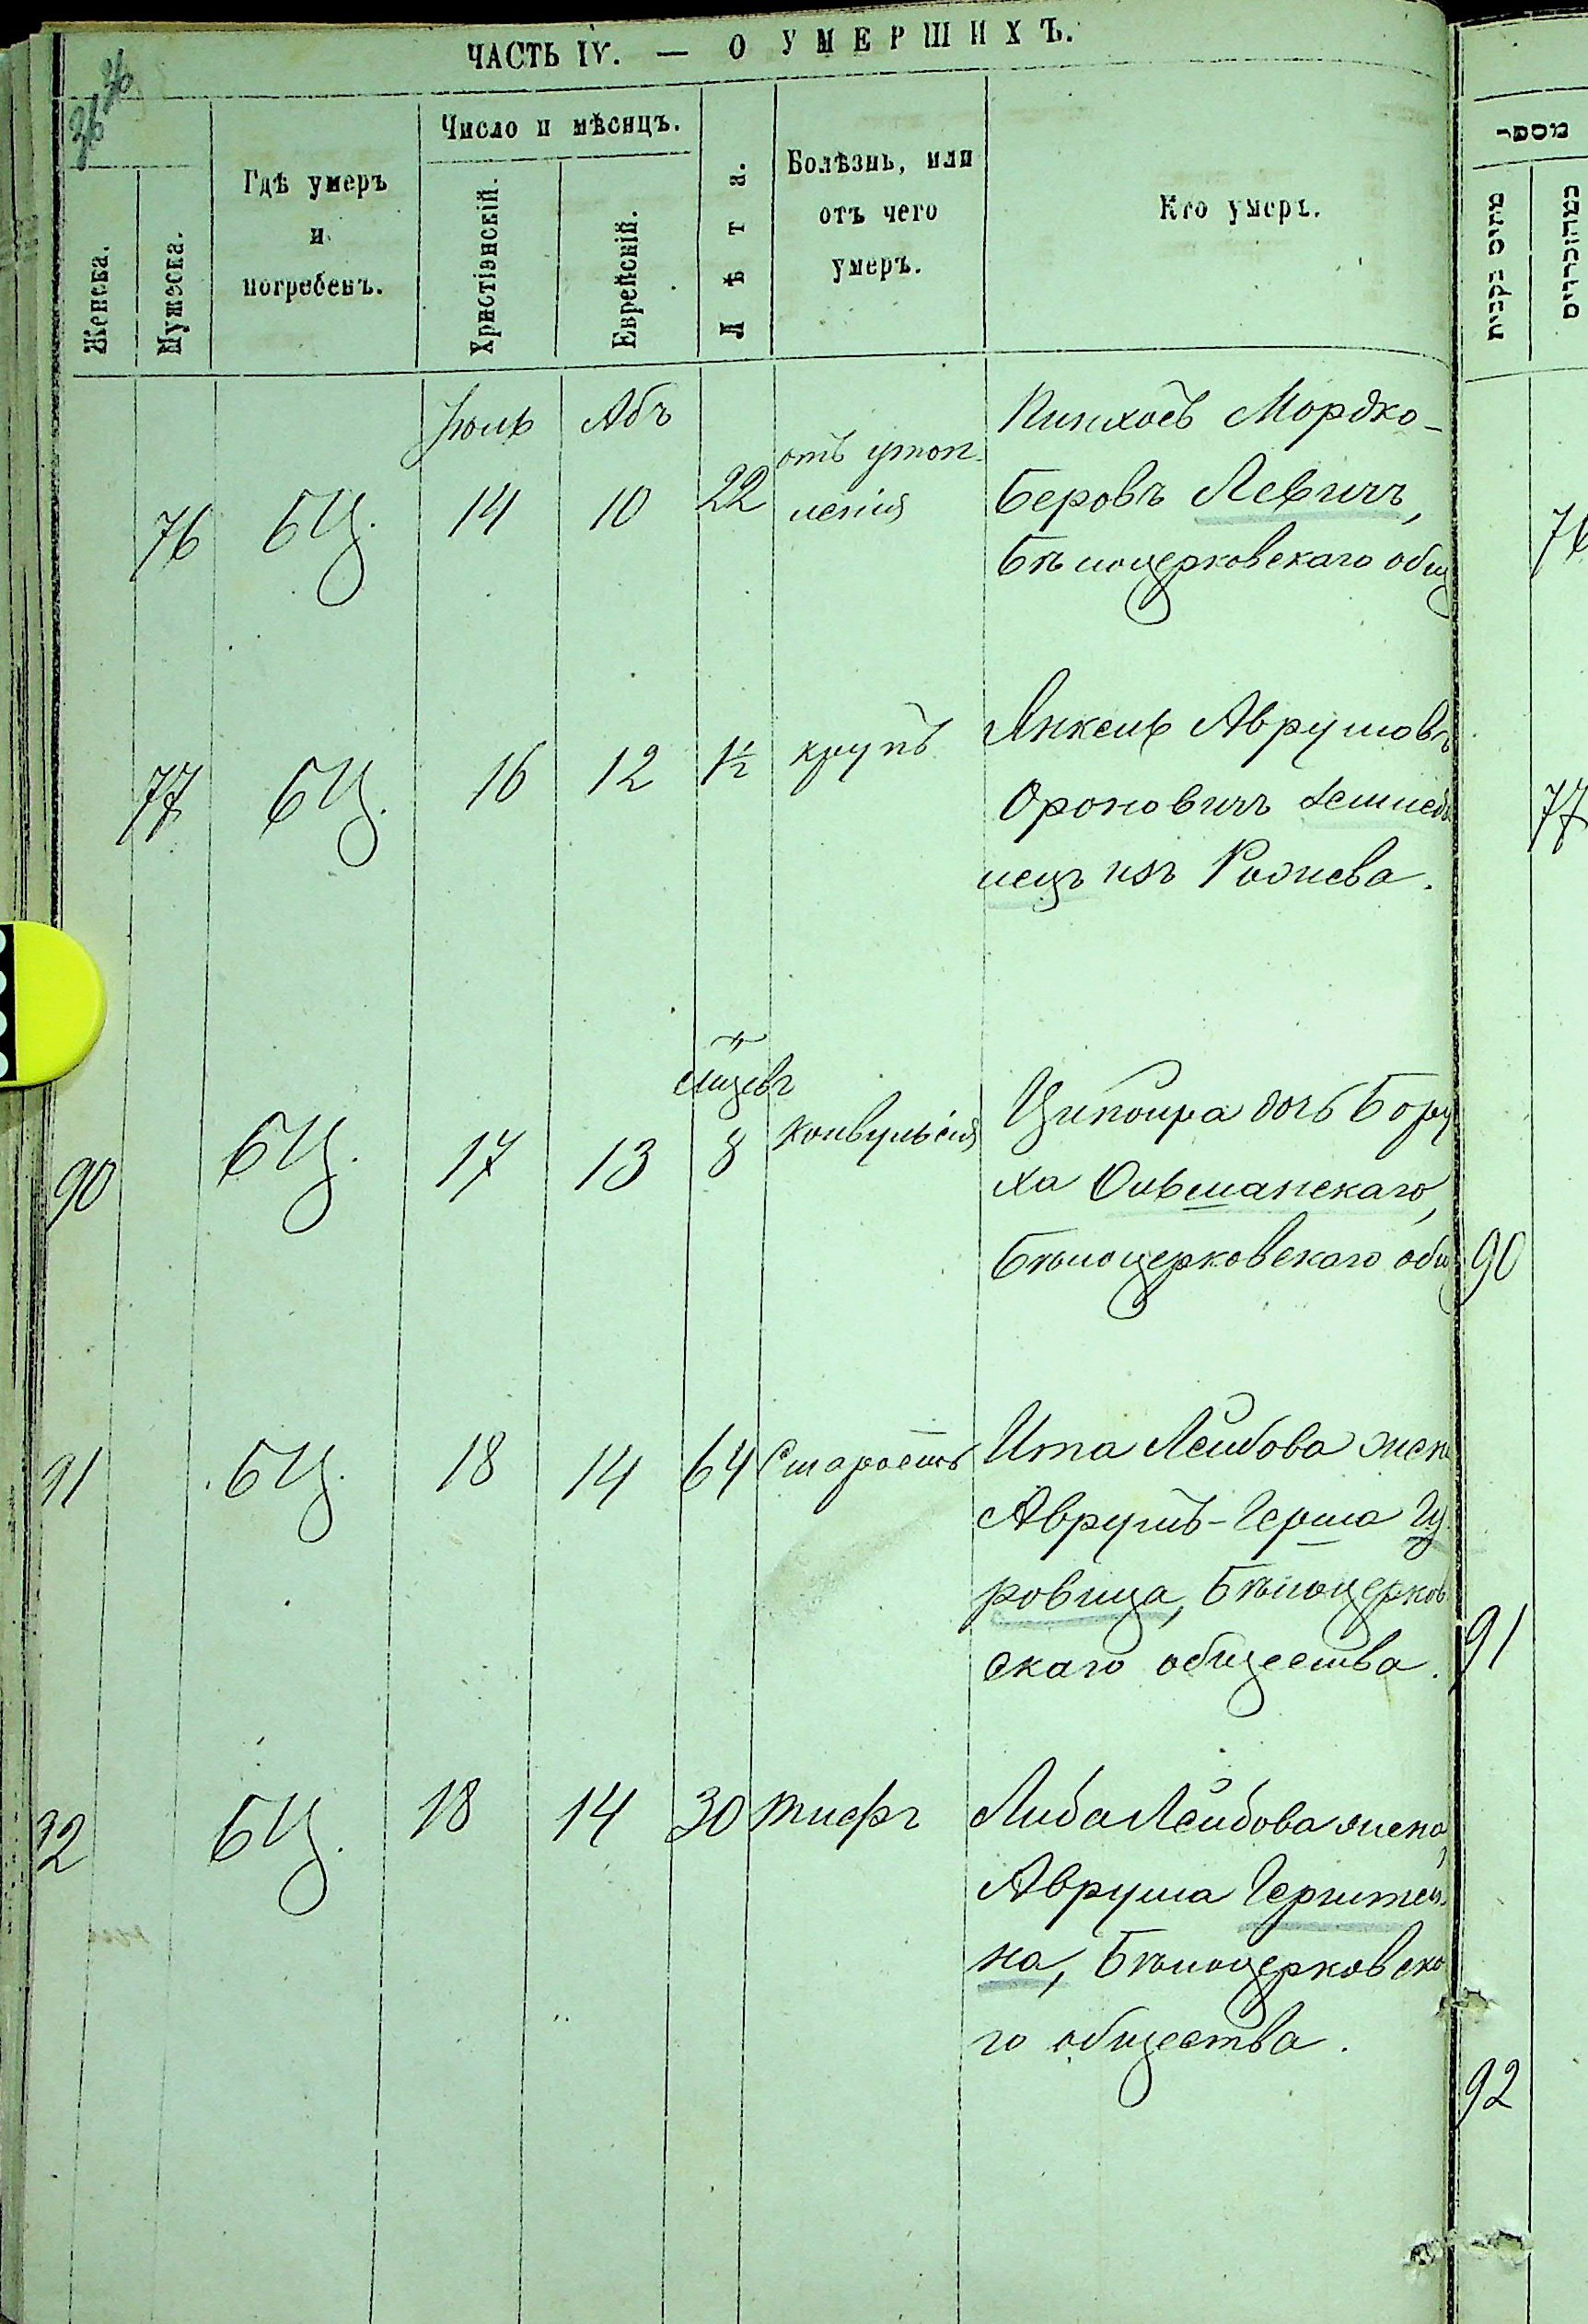 ЧАСТЬ IV. — О УМЕРШИХЪ.
36 36
Женска.
Мужеска.
Гдѣ умеръ
и
погребенъ.
Число и мѣсяцъ.
Христіанскій.
Еврейскій.
Лѣта.
Болѣзнь, или
отъ чего
умеръ.
Кто умеръ.
מספר
Іюль Абъ
76 БЦ. 14 10 22 отъ утоп-
ленія
Пинхосъ Мордко-
Беровъ Левичъ,
Бѣлоцерковскаго общ
76
77 БЦ. 16 12 1½ крупъ
Янкель Аврумовъ
Ороновичъ
нецъ изъ Рожева.
77
90 БЦ. 17 13 мѣсяцевъ 8 конвульсія
Ципойра дочь Бору
ха Ольшанскаго,
Бѣлоцерковскаго общ
90
91 БЦ. 18 14 64 Старость
Ита Лейбова жена
Аврумъ-Герша Гу
ровица, Бѣлоцерков
скаго общества.
91
92 БЦ. 18 14 30 тифъ
Либа Лейбова жена
Аврума
на, Бѣлоцерковска
го общества.
92